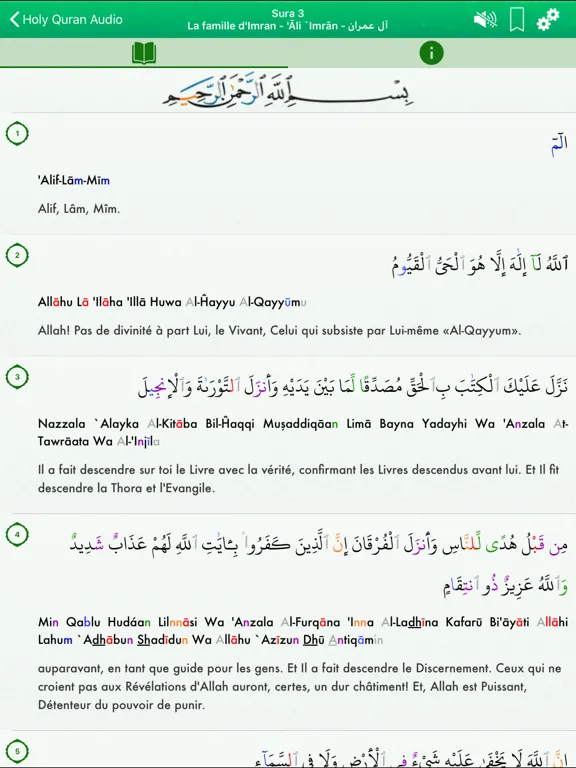 Holy Quran Audio
Sura 3
La famille d'Imran - 'Āli `Imrān - آل عمران
بِسْمِ ٱللَّهِ ٱلرَّحْمَٰنِ ٱلرَّحِيمِ
1
الٓمٓ
'Alif-Lām-Mīm
Alif, Lâm, Mîm.
2
ٱللَّهُ لَآ إِلَٰهَ إِلَّا هُوَ ٱلْحَىُّ ٱلْقَيُّومُ
Allāhu Lā 'Ilāha 'Illā Huwa Al-Ĥayyu Al-Qayyūmu
Allah! Pas de divinité à part Lui, le Vivant, Celui qui subsiste par Lui-même «Al-Qayyum».
3
نَزَّلَ عَلَيْكَ ٱلْكِتَٰبَ بِٱلْحَقِّ مُصَدِّقًا لِّمَا بَيْنَ يَدَيْهِ وَأَنزَلَ ٱلتَّوْرَىٰةَ وَٱلْإِنجِيلَ
Nazzala `Alayka Al-Kitāba Bil-Ĥaqqi Muşaddiqāan Limā Bayna Yadayhi Wa 'Anzala At-
Tawrāata Wa Al-'Injīla
Il a fait descendre sur toi le Livre avec la vérité, confirmant les Livres descendus avant lui. Et Il fit
descendre la Thora et l'Evangile.
4
مِن قَبْلُ هُدًى لِّلنَّاسِ وَأَنزَلَ ٱلْفُرْقَانَ إِنَّ ٱلَّذِينَ كَفَرُوا۟ بِـَٔايَٰتِ ٱللَّهِ لَهُمْ عَذَابٌ شَدِيدٌ
وَٱللَّهُ عَزِيزٌ ذُو ٱنتِقَامٍ
Min Qablu Hudáan Lilnnāsi Wa 'Anzala Al-Furqāna 'Inna Al-Ladhīna Kafarū Bi'āyāti Allāhi
Lahum `Adhābun Shadīdun Wa Allāhu `Azīzun Dhū Antiqāmin
auparavant, en tant que guide pour les gens. Et Il a fait descendre le Discernement. Ceux qui ne
croient pas aux Révélations d'Allah auront, certes, un dur châtiment! Et, Allah est Puissant,
Détenteur du pouvoir de punir.
5
إِنَّ ٱللَّهَ لَا يَخْفَىٰ عَلَيْهِ شَىْءٌ فِى ٱلْأَرْضِ وَلَا فِى ٱلسَّمَآءِ